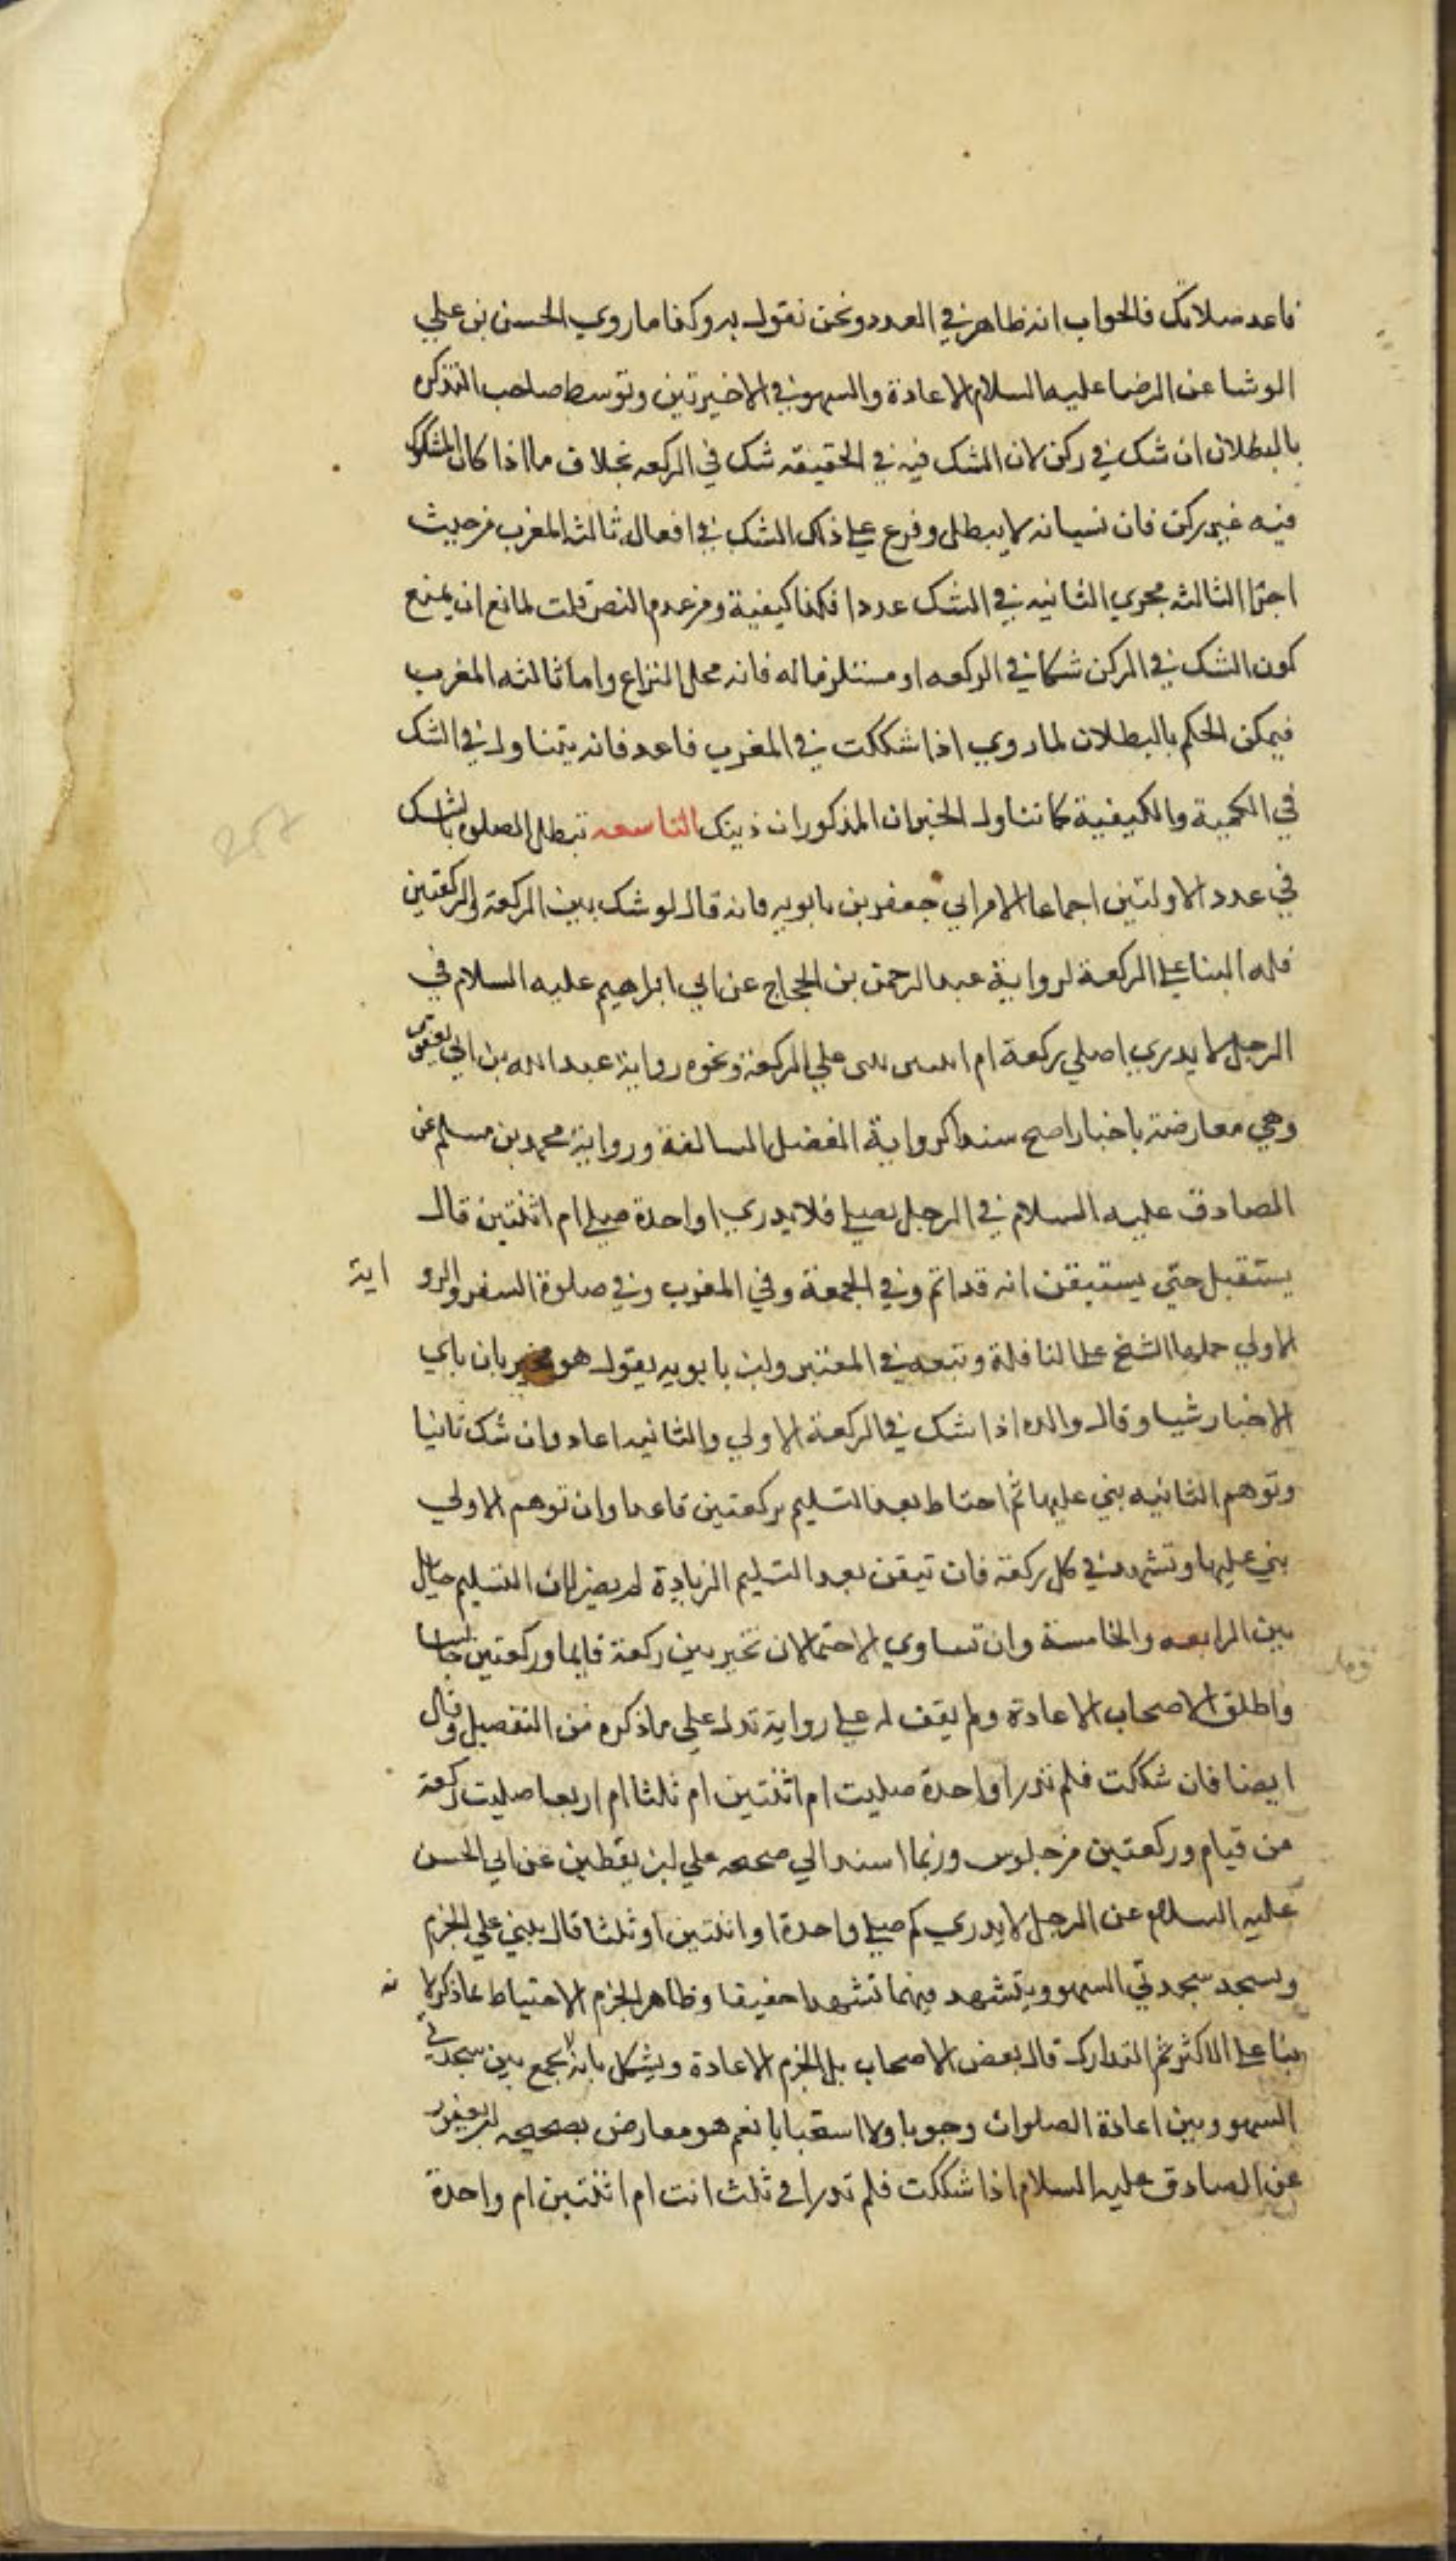 فاعد صلاتك فالجواب انه ظاهر في العدد ونحن نقول به وكذا ما روي الحسن بن علي
الوشا عن الرضا عليه السلام الاعادة والسهو في الاخيرتين وتوسط صاحب التذكره
بالبطلان ان شك في ركن لان الشك فيه في الحقيقه شك في الركعه بخلاف ما اذا كان المشكوك
فيه غير ركن فان نسيانه لا يبطل وفرع علي ذلك الشك في افعال ثالثه المغرب من حيث
اجرا الثالثه مجري الثانيه في الشك عددا فكذا كيفية ومن عدم النص قلت لمانع ان يمنع
كون الشك في الركن شكا في الركعه او مستلزما له فانه محل النزاع واما ثالثه المغرب
فيمكن الحكم بالبطلان لما روي اذا شككت في المغرب فاعد فانه يتناول في الشك
في الكمية والكيفية كما تناول الخبران المذكوران ذينك التاسعه تبطل الصلوة بالشك
في عدد الاولتين اجماعا الا من ابي جعفر بن بابويه فانه قال لو شك بين الركعة والركعتين
فله البنا علي الركعة لرواية عبد الرحمن بن الحجاج عن ابي ابراهيم عليه السلام في
الرجل لا يدري اصلي ركعة ام اثنتين يبني علي الركعة ونحوه رواية عبد الله بن ابي يعفور
وهي معارضة باخبار اصح سندا كرواية الفضل السالفة ورواية محمد بن مسلم عن
الصادق عليه السلام في الرجل يصلي فلا يدري اواحدة صلي ام اثنتين قال
يستقبل حتي يستيقن انه قد اتم وفي الجمعة وفي المغرب وفي صلوة السفر والرو اية
الاولي حملها الشيخ علي النافلة وتبعه في المعتبر وابن بابويه يقول هو مخير بان باي
الاخبار شيا وقال والده اذا شك في الركعة الاولي والثانيه اعاد وان شك ثانيا
وتوهم الثانيه بني عليها ثم احتاط بعد التسليم بركعتين قاعدا وان توهم الاولي
بني عليها وتشهد في كل ركعة فان تيقن بعد التسليم الزيادة لم يضر لان التسليم حايل
بين الرابعه والخامسة وان تساوي الاحتمالان تخير بين ركعة قايما وركعتين جالسا
واطلق الاصحاب الاعادة ولم يقف له علي رواية تدل علي ما ذكره من التفصيل وقال
ايضا فان شككت فلم تدر اواحدة صليت ام اثنتين ام ثلثا ام اربعا صليت ركعة
من قيام وركعتين من جلوس وربما اسند الي صحيحه علي بن يقطين عن ابي الحسن
عليه السلام عن الرجل لا يدري كم صلي واحدة او اثنتين او ثلثا قال يبني علي الجزم
ويسجد سجدتي السهو ويتشهد فيهما تشهدا خفيفا وظاهر الجزم الاحتياط بما ذكر لا نه
بنا علي الاكثر ثم التدارك قال بعض الاصحاب بل الجزم الاعادة ويشكل بانه لا يجمع بين سجدتي
السهو وبين اعادة الصلوات وجوبا ولا استحبابا نعم هو معارض بصحيحه ابن ابي يعفور
عن الصادق عليه السلام اذا شككت فلم تدر افي ثلث انت ام اثنتين ام واحدة